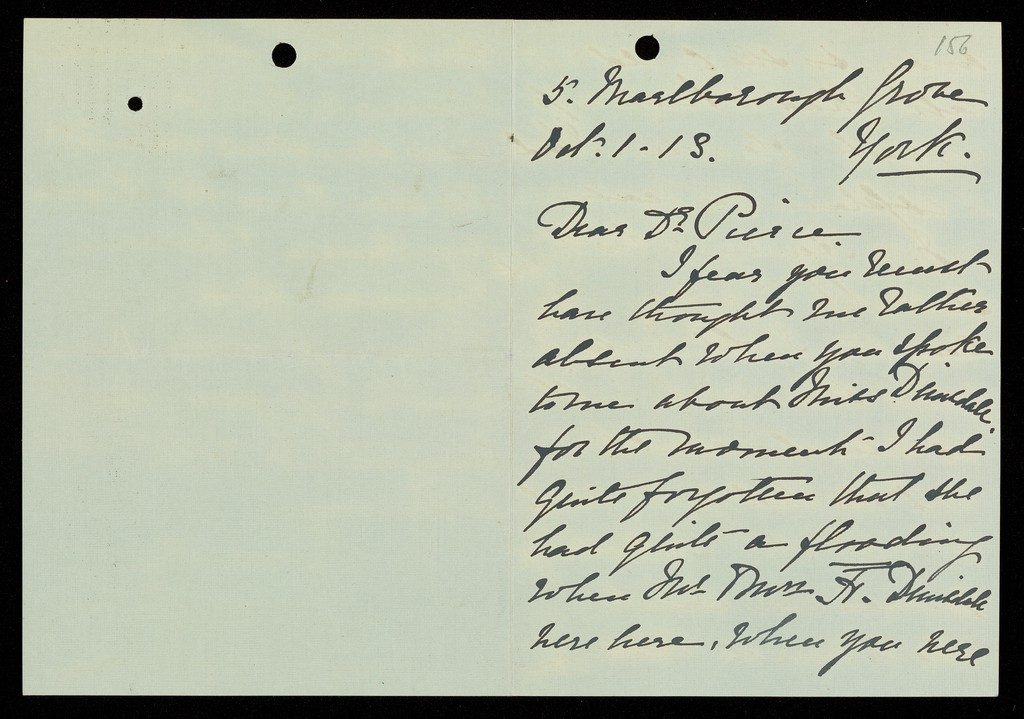 156
5. Marlborough Grove
Oct. 1 - 13. York.
Dear Dr Pierce
I fear you must
have thought me rather
absent when you spoke
to me about Miss Dimsdale.
for the moment I had
quite forgotten that she
had quite a flooding
when Mr & Mrs F. Dimsdale
were here, when you were